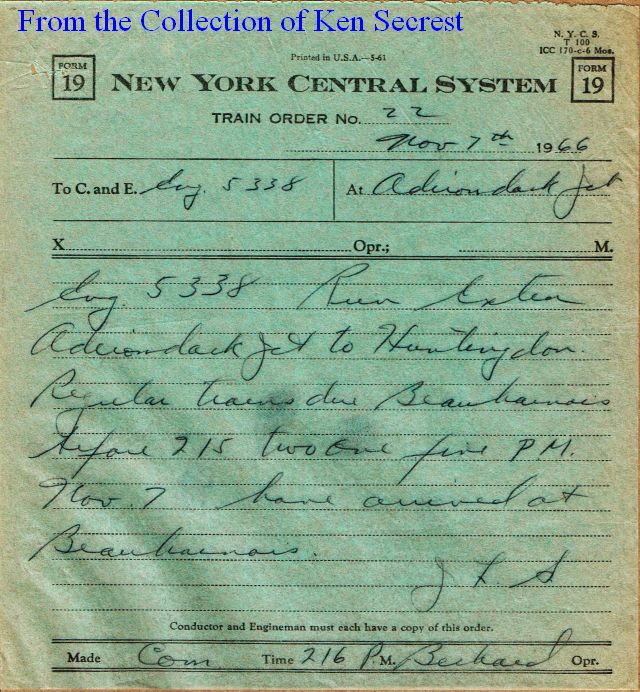 From the Collection of Ken Secrest
N. Y. C. S.
T 100
ICC 170-c-6 Mos.
Printed in U.S.A.—5-61
FORM
19
NEW YORK CENTRAL SYSTEM
FORM
19
TRAIN ORDER No. 22
Nov 7th 1966
To C. and E. Eng. 5338 At Adirondack Jct
X Opr.; M.
Eng 5338 Run Extra
Adirondack Jct to Huntingdon.
Regular trains due Beauharnois
before 215 two one five P.M.
Nov. 7 have arrived at
Beauharnois.
Conductor and Engineman must each have a copy of this order.
Made Com Time 216 P. M. Opr.